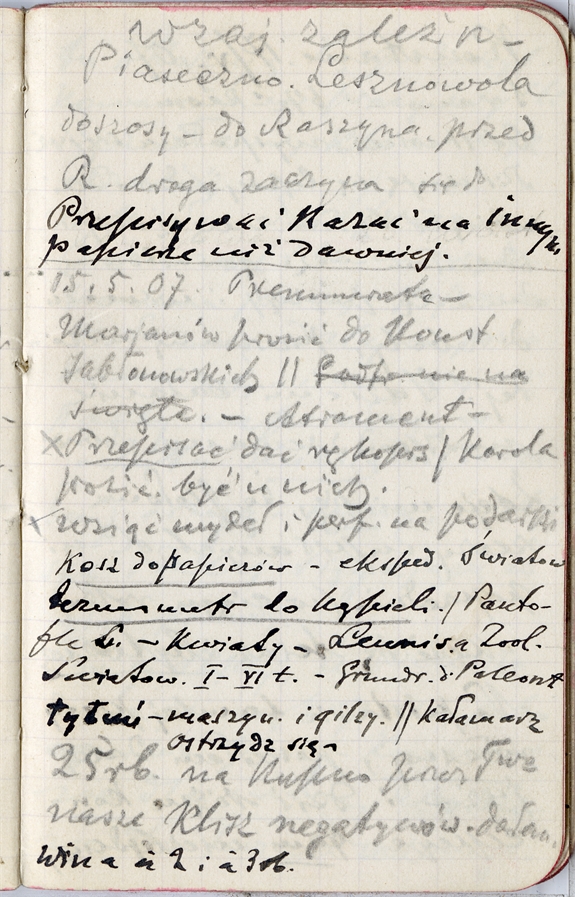 wzaj. zależn-
Piaseczno. Lesznowola
do szosy - do Raszyna. przed
R. droga zaczyna się
Przepisywać Kazać na innym
papierze niż dawniej.
15. 5. 07. Prenumerata -
Marjanów prosić do Konst
Jabłonowskich || na
święta. - Atrament -
x Przepisać dać rękopis / Karola
prosić. być u nich.
x wziąć mydeł i perf. na podarki
Kosz do papierów - eksped. Światow
termometr do kąpieli. / Panto-
fle - Kwiaty - Leunis. a Zool.
Światow. I - VI t. - Grundr. d. Paleont
tytuń - maszyn. i gilzy. || Kałamarz
ostrzydz się -
25 rb. na Kupno przez Twa
nasze Klisz negatywów.
Wina à 2 i à 3 rb.